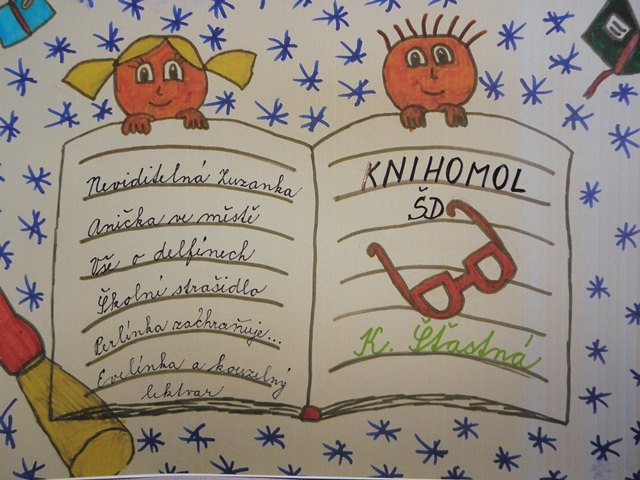 Neviditelná Zuzanka
Anička ve městě
Vše o delfínech
Školní strašidlo
Perlinka zachraňuje...
Evelínka a kouzelný
lektvar
KNIHOMOL
ŠD
K. Šťastná